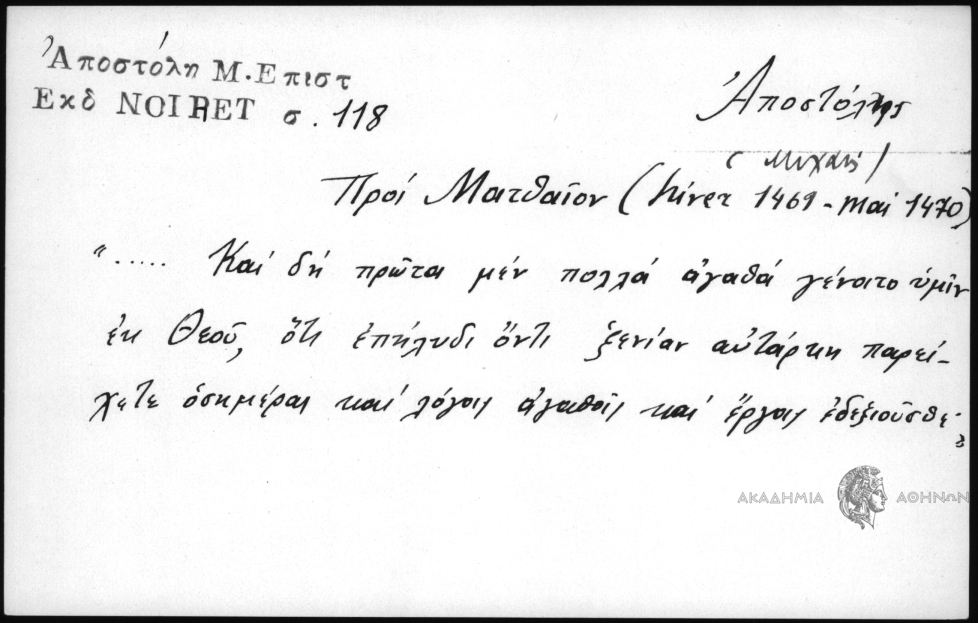 Ἀποστόλη Μ. Επιστ
Εκδ NOIRET σ. 118
Ἀποστόλης
(Μιχαήλ)
Πρός Ματθαῖον (hiver 1469 - mai 1470)
"..... Καί δή πρῶτα μέν πολλά ἀγαθά γένοιτο ὑμῖν
ἐκ Θεοῦ, ὅτι ἐπήλυδι ὄντι ξενίαν αὐτάρκη παρεί-
χετε ὁσημέραι καί λόγοις ἀγαθοῖς καί ἔργοις ἐδεξιοῦσθε·"
ΑΚΑΔΗΜΙΑ ΑΘΗΝΩΝ